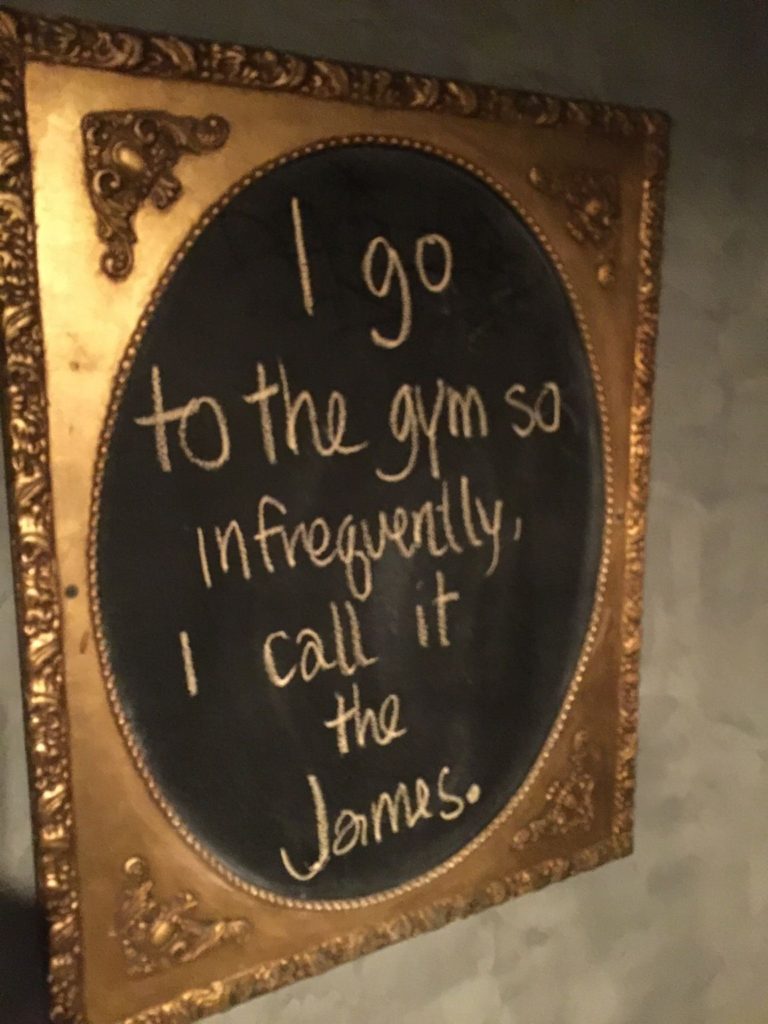 I go
to the gym so
infrequently,
I call it
the
James.